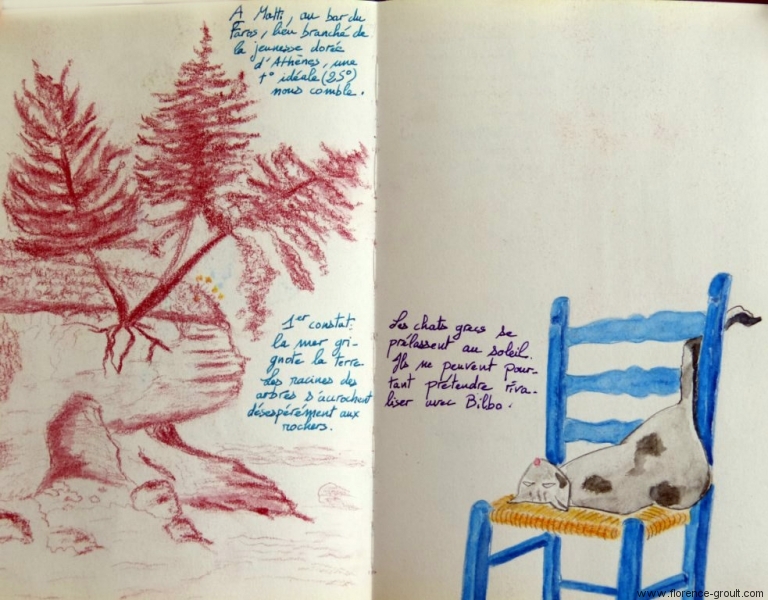 A Matti, au bar du
Faros, lieu branché de
la jeunesse dorée
d'Athènes, une
t° idéale (25°)
nous comble.
1er constat:
la mer gri-
gnote la terre.
Les racines des
arbres s'accrochent
désespérément aux
rochers.
Les chats grecs se
prélassent au soleil.
Ils ne peuvent pour-
tant prétendre riva-
liser avec Bilbo.
www.florence-groult.com